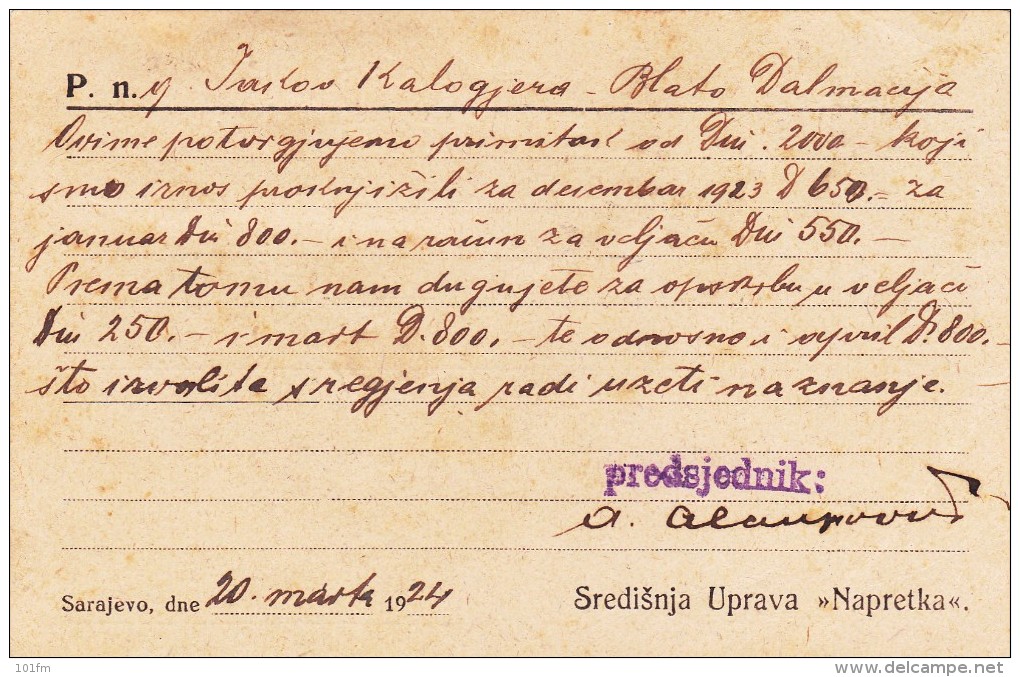 P. n. g. Jakov Kalogjera - Blato Dalmacija
Ovime potvrgjujemo primitak od Din. 2000 - koji
smo iznos proknjižili za decembar 1923 D 650.- za
januar Din 800.- i na račun za veljaču Din 550.-
Prema tomu nam dugujete za opskrbu u veljači
Din 250.- i mart D. 800.- te odnosno i april D. 800.-
što izvolite sregjenja radi uzeti na znanje.
predsjednik:
A.
Sarajevo, dne 20. marta 1924
Središnja Uprava »Napretka«.
101fm
delcampe.net